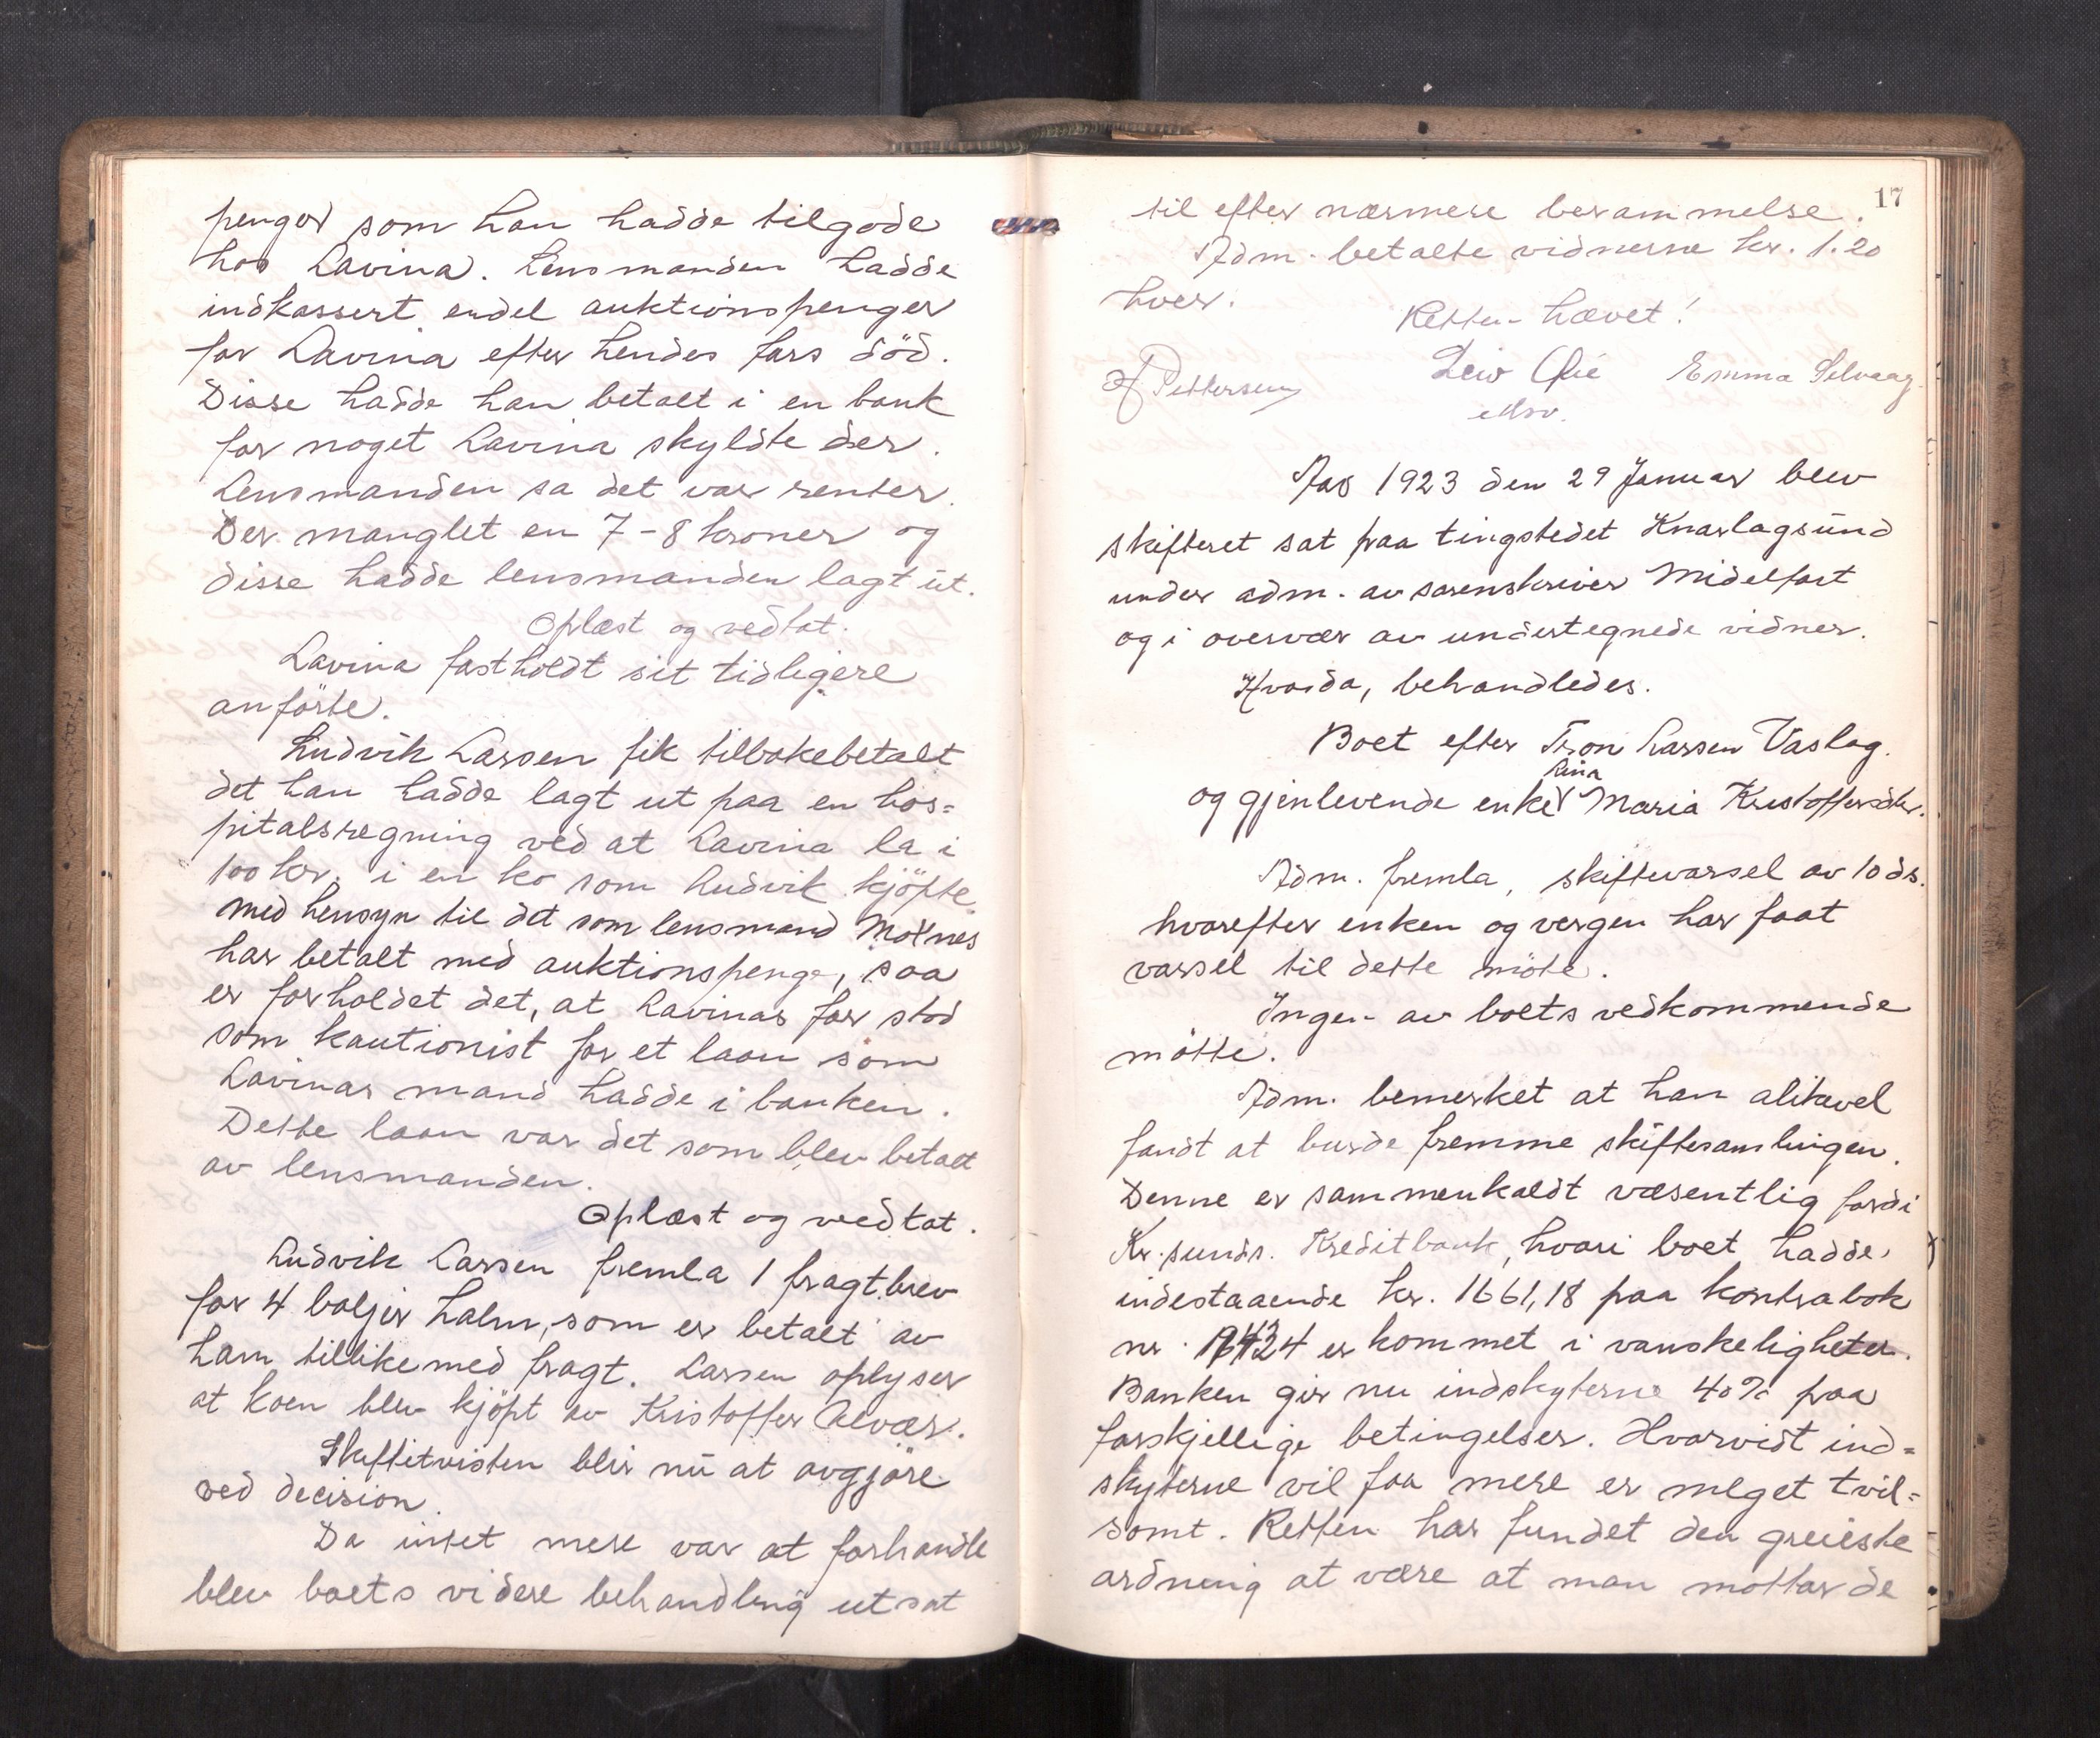 penger som han hadde tilgode
hos Lavina. Lensmanden hadde
indkassert endel auktionspenger
for Lavina efter hendes fars död.
Disse hadde han betalt i en bank
for noget Lavina skyldte der.
Lensmanden sa det var renter.
Der manglet en 7-8 kroner og
disse hadde lensmanden lagt ut.
Oplæst og vedtat.
Lavina fastholdt sit tidligere
anförte.
Ludvik Larsen fik tilbakebetalt
det han hadde lagt ut paa en hos=
pitalsregning ved at Lavina la i
100 kr. i en ko som Ludvik kjöpte.
Med hensyn til det som lensmand Moxnes
har betalt med auktionspenge, saa
er forholdet det, at Lavinas far stod
som kautionist for et laan som
Lavinas mand hadde i banken.
Dette laan var det som blev betalt
av lensmanden.
Oplæst og vedtat.
Ludvik Larsen fremla 1 fragtbrev
for 4 baljer halm, som er betalt av
ham tillikemed fragt. Larsen oplyser
at koen blev kjöpt av Kristoffer
Skiftetvisten blir nu at avgjöre
ved decision.
Da intet mere var at forhandle
blev boets videre behandling utsat
17
til efter nærmere berammelse.
Adm. betalte vidnerne kr. 1.20
hver.
Retten hævet!
Pettersen Leiv Emma Selvaag
Aar 1923 den 29 Januar blev
skifteret sat paa tingstedet Knarlagsund
under adm. av sorenskriver Midelfart
og i overvær av undertegnede vidner.
Hvorda, behandledes.
Boet efter Tron Larsen Vaslag.
og gjenlevende enke Lina Maria Kristoffersdtr.
Adm. fremla, skiftevarsel av 10 ds.
hvorefter enken og vergen har faat
varsel til dette möte.
Ingen av boets vedkommende
mötte.
Adm. bemerket at han alikevel
fandt at burde fremme skiftesamlingen.
Denne er sammenkaldt væsentlig fordi
Kr.sunds. Kreditbank, hvori boet hadde
indestaaende kr. 1661,18 paa kontrabok
nr. er kommet i vanskeligheter.
Banken gir nu indskyterne 40% paa
forskjellige betingelser. Hvorvidt ind=
skyterne vil faa mere er meget tvil=
somt. Retten har fundet den greieste
ordning at være at man mottar de